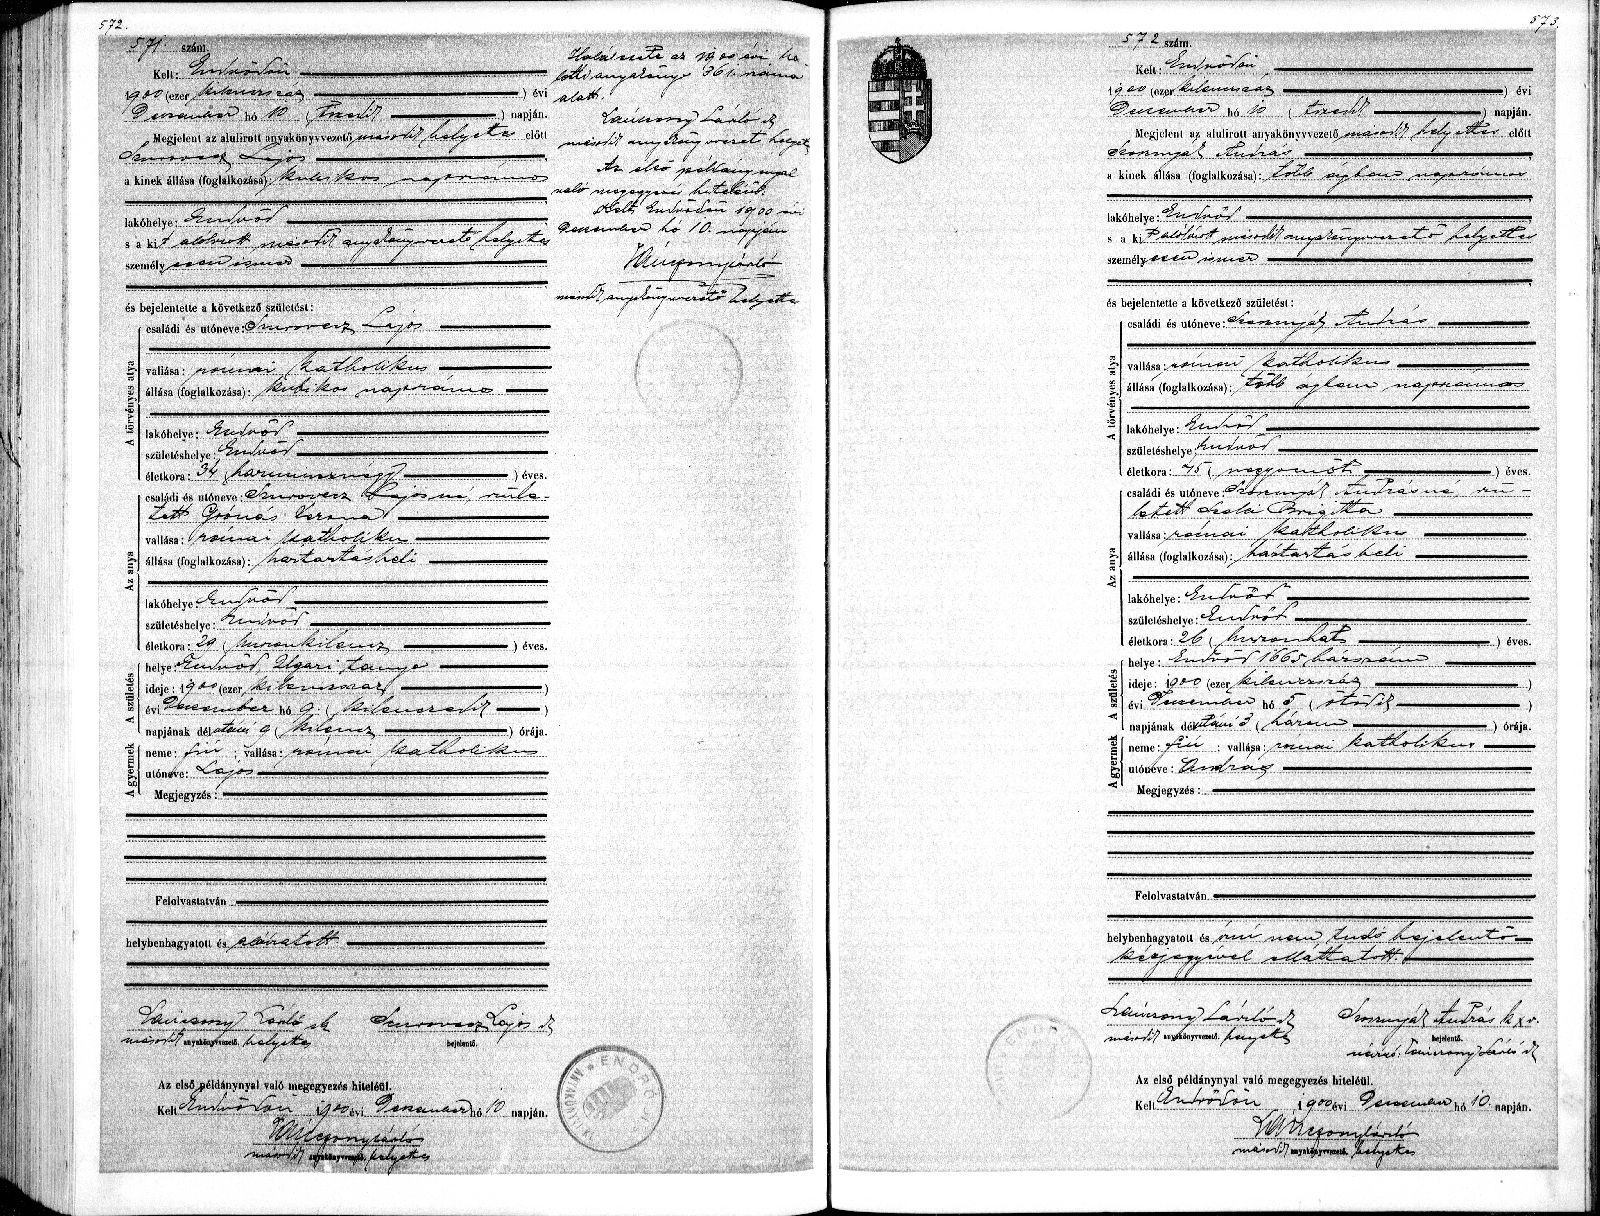 572.
571. szám.
Kelt: Endrődön
1900 (ezer kilenczszáz) évi
December hó 10 (tizedik) napján.
Megjelent az alulirott anyakönyvvezető második helyettes előtt
Lajos
a kinek állása (foglalkozása): kubikos napszámos
lakóhelye: Endrőd
s a kit alólirott második anyakönyvvezető helyettes
személyesen ismer
és bejelentette a következő születést:
A törvényes atya
családi és utóneve: Lajos
vallása: római katholikus
állása (foglalkozása): kubikos napszámos
lakóhelye: Endrőd
születéshelye: Endrőd
életkora: 34 (harmincznégy) éves.
Az anya
családi és utóneve: Lajosné, szüle-
tett
vallása: római katholikus
állása (foglalkozása): háztartásbeli
lakóhelye: Endrőd
születéshelye: Endrőd
életkora: 29 (huszonkilencz) éves.
A születés
helye: Endrőd Ugari tanya
ideje: 1900 (ezer kilenczszáz)
évi December hó 9. (kilenczedik)
napjának délutáni 9 (kilencz) órája.
A gyermek
neme: fiú; vallása: római katholikus
utóneve: Lajos
Megjegyzés:
Felolvastatván
helybenhagyatott és aláiratott
László sk Lajos sk
második anyakönyvvezető. helyettes bejelentő.
Az első példánynyal való megegyezés hiteléül.
Kelt Endrődön 1900 évi December hó 10 napján.
második anyakönyvvezető. helyettes
Halálesete az 1900 évi ha-
lotti anyakönyv 361. száma
alatt.
László sk
második anyakönyvvezető helyettes
Az első példánynyal
való megegyezés hiteléül.
Kelt Endrődön 1900 évi
December hó 10. napján
második anyakönyvvezető helyettes
573.
572 szám.
Kelt: Endrődön
1900 (ezer kilenczszáz) évi
December hó 10 (tizedik) napján.
Megjelent az alulirott anyakönyvvezető második helyettes előtt
András
a kinek állása (foglalkozása): több ágban napszámos
lakóhelye: Endrőd
s a kit alólirott második anyakönyvvezető helyettes
személyesen ismer
és bejelentette a következő születést:
A törvényes atya
családi és utóneve: András
vallása: római katholikus
állása (foglalkozása): több ágban napszámos
lakóhelye: Endrőd
születéshelye: Endrőd
életkora: 45 (negyvenöt) éves.
Az anya
családi és utóneve: Andrásné, szü-
letett Brigitta
vallása: római katholikus
állása (foglalkozása): háztartásbeli
lakóhelye: Endrőd
születéshelye: Endrőd
életkora: 26 (huszonhat) éves.
A születés
helye: Endrőd 1665 házszám
ideje: 1900 (ezer kilenczszáz)
évi December hó 5 (ötödik)
napjának délutáni 3 (három) órája.
A gyermek
neme: fiú; vallása: római katholikus
utóneve: András
Megjegyzés:
Felolvastatván
helybenhagyatott és irni nem tudó bejelentő
kézjegyével elláttatott.
László sk András k x v.
második anyakönyvvezető. helyettes bejelentő.
László sk
Az első példánynyal való megegyezés hiteléül.
Kelt Endrődön 1900 évi December hó 10. napján.
második anyakönyvvezető. helyettes